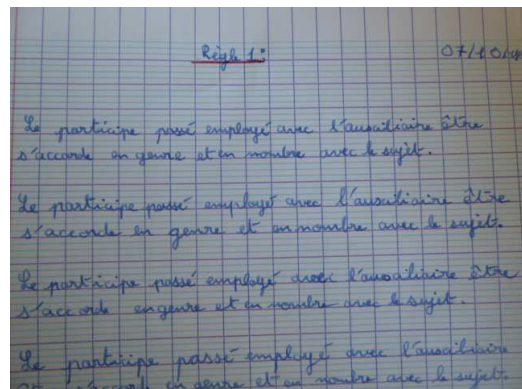 Règle 1: 07/10/
Le participe passé employé avec l'auxiliaire être
s'accorde en genre et en nombre avec le sujet.
Le participe passé employé avec l'auxiliaire être
s'accorde en genre et en nombre avec le sujet.
Le participe passé employé avec l'auxiliaire être
s'accorde en genre et en nombre avec le sujet.
Le participe passé employé avec l'auxiliaire
s'accorde en genre et en nombre avec le sujet.